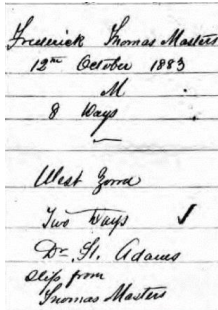 Frederick Thomas Masters
12th October 1883
M
8 Days
—
West Zorra
Two Days ✓
Dr. H. Adams
slip from
Thomas Masters